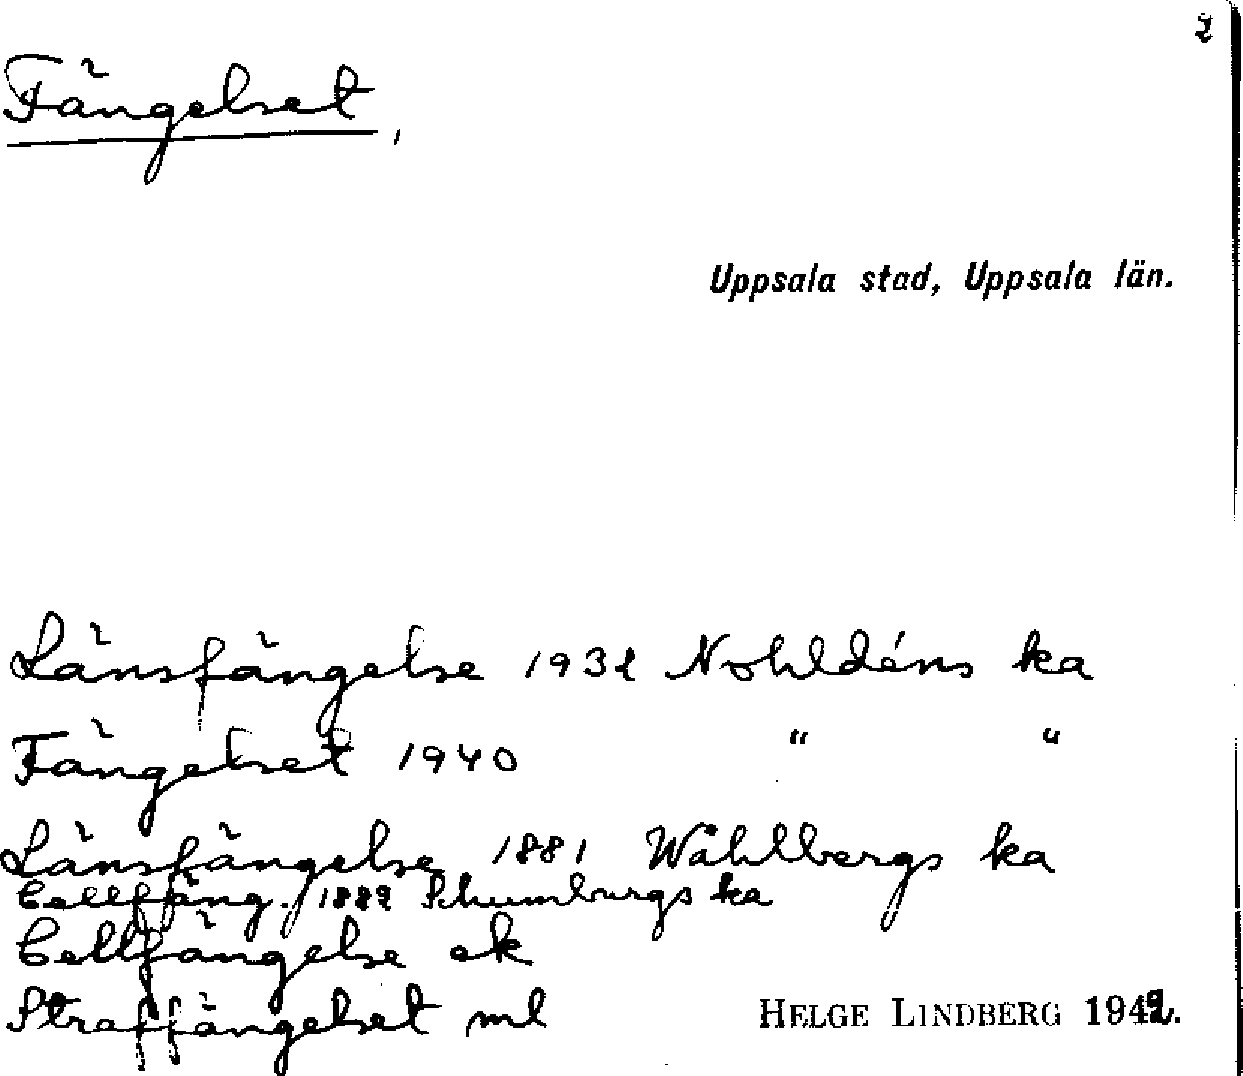 2
Fängelset,
Uppsala stad, Uppsala län.
Länsfängelse 1932 Nohldéns ka
Fängelset 1940 " "
Länsfängelse 1881 Wåhlbergs ka
Cellfäng. 1882 Schumburgs ka
Cellfängelse ek
Straffängelset ml
HELGE LINDBERG 1949.